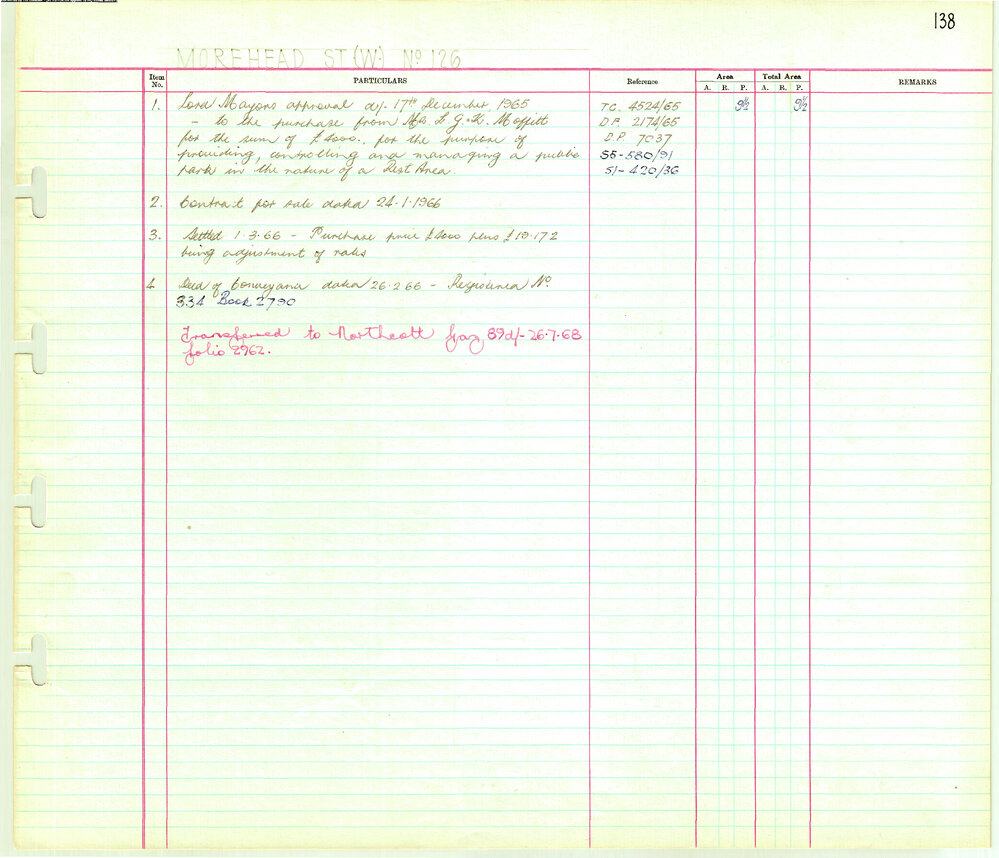 138
MOREHEAD ST (W) No 126
Item No. PARTICULARS Reference Area Total Area REMARKS
A. R. P. A. R. P.
1. Lord Mayors approval d/- 17th December 1965 TC. 4524/65 9½ 9½
- to the purchase from Mrs L. G. K. Moffitt D.P. 2174/65
for the sum of £4000. for the purpose of D.P. 7037
providing, controlling and managing a public S5-580/91
park in the nature of a Rest Area. S1-420/36
2. Contract for sale dated 24.1.1966
3. Settled 1.3.66 - Purchase price £4000 plus £10.17.2
being adjustment of rates
4. Deed of Conveyance dated 26.2.66 - Registered No.
334 Book 2790
Transferred to Northcott gaz 89 d/- 26.7.68
folio 2962.